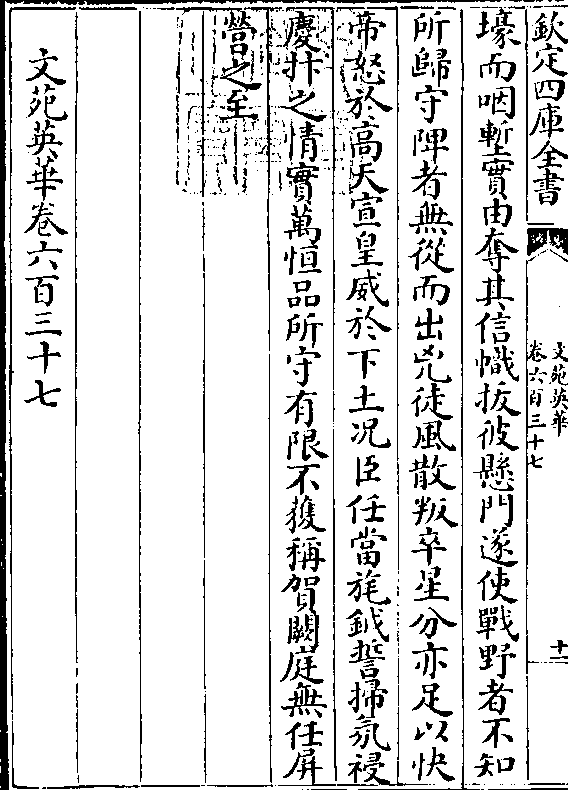 欽定四庫全書
文苑英華
卷六百三十七
十一
壕而咽塹實由奪其信幟抜彼懸門遂使戰野者不知
所歸守陴者無從而出兇徒風散叛卒星分亦足以快
帝怒於高天宣皇威於下土况臣任當旄鉞誓掃氛祲
慶抃之情實萬恒品所守有限不獲稱賀闕庭無任屏
營之至
文苑英華卷六百三十七